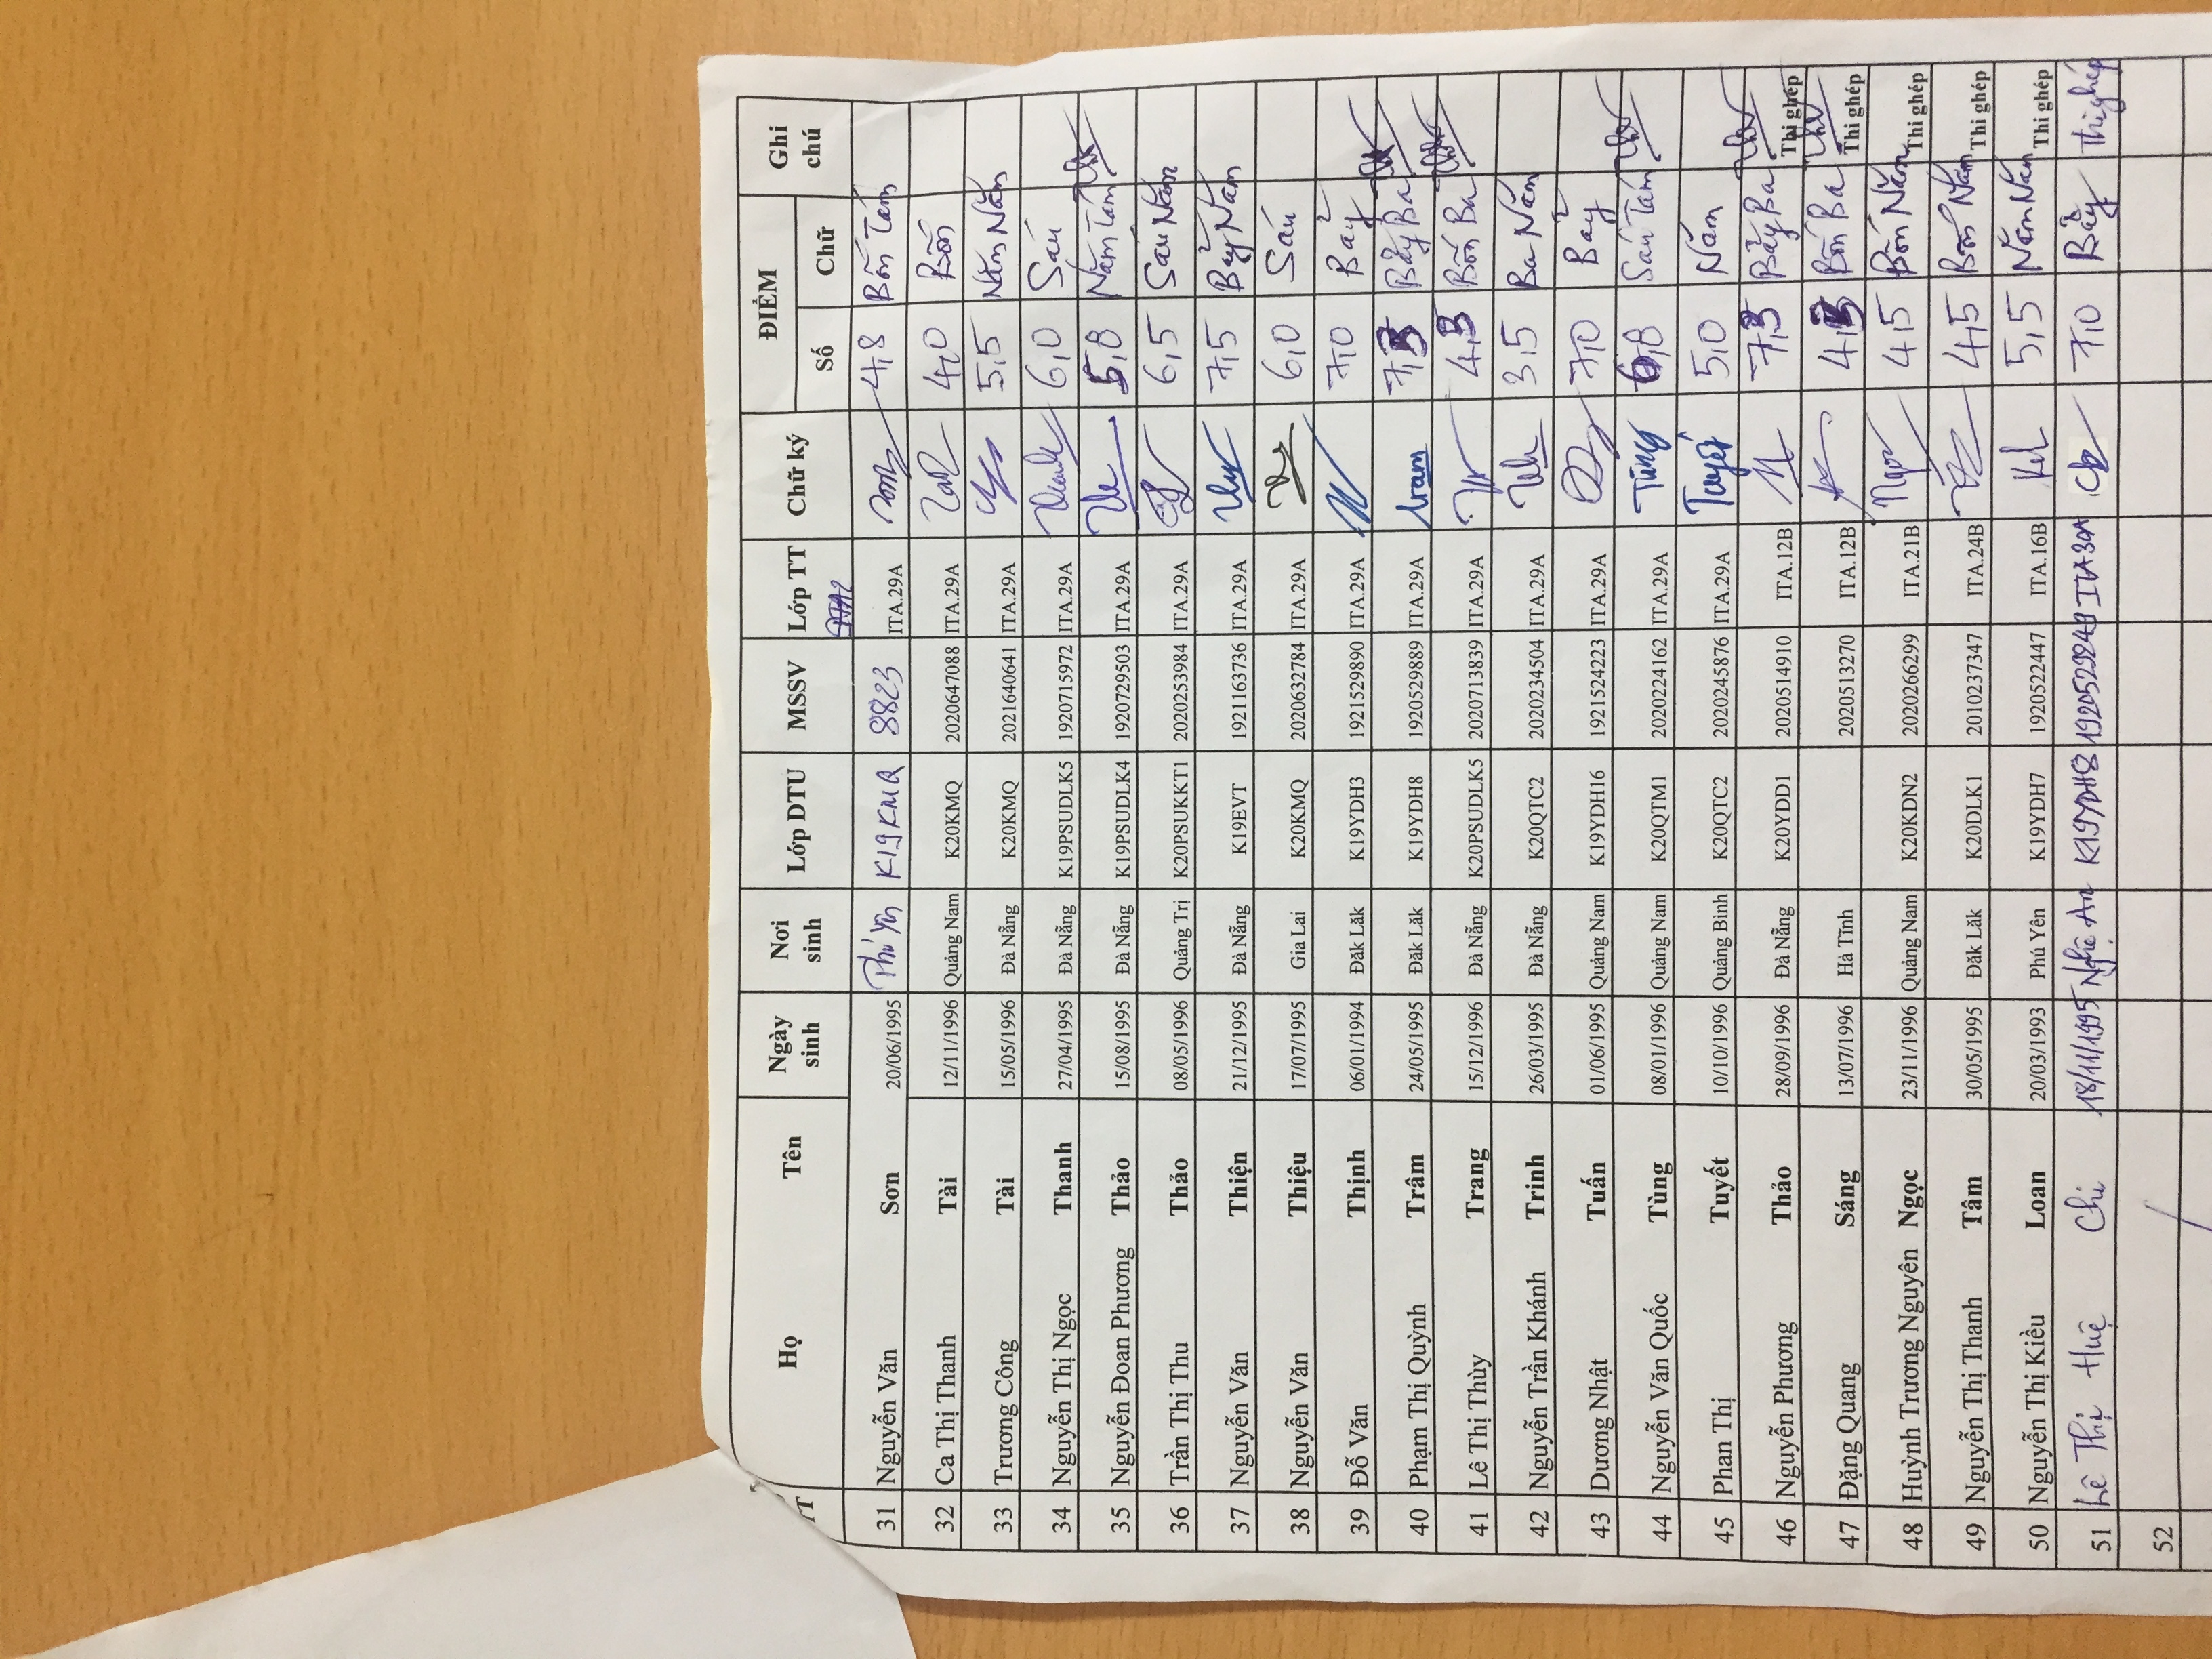 TT Họ Tên Ngày sinh Nơi sinh Lớp DTU MSSV Lớp TT Chữ ký ĐIỂM Số Chữ Ghi chú
31 Nguyễn Văn Sơn 20/06/1995 Phú Yên K19KMQ 8823 ITA.29A 4,8 Bốn Tám
32 Ca Thị Thanh Tài 12/11/1996 Quảng Nam K20KMQ 2020647088 ITA.29A 4,0 Bốn
33 Trương Công Tài 15/05/1996 Đà Nẵng K20KMQ 2021640641 ITA.29A 5,5 Năm Năm
34 Nguyễn Thị Ngọc Thanh 27/04/1995 Đà Nẵng K19PSUDLK5 1920715972 ITA.29A 6,0 Sáu
35 Nguyễn Đoan Phương Thảo 15/08/1995 Đà Nẵng K19PSUDLK4 1920729503 ITA.29A 5,8 Năm Tám
36 Trần Thị Thu Thảo 08/05/1996 Quảng Trị K20PSUKKT1 2020253984 ITA.29A 6,5 Sáu Năm
37 Nguyễn Văn Thiện 21/12/1995 Đà Nẵng K19EVT 1921163736 ITA.29A 7,5 Bảy Năm
38 Nguyễn Văn Thiệu 17/07/1995 Gia Lai K20KMQ 2020632784 ITA.29A 6,0 Sáu
39 Đỗ Văn Thịnh 06/01/1994 Đăk Lăk K19YDH3 1921529890 ITA.29A 7,0 Bảy
40 Phạm Thị Quỳnh Trâm 24/05/1995 Đăk Lăk K19YDH8 1920529889 ITA.29A tram 7,3 Bảy Ba
41 Lê Thị Thùy Trang 15/12/1996 Đà Nẵng K20PSUDLK5 2020713839 ITA.29A 4,3 Bốn Ba
42 Nguyễn Trần Khánh Trinh 26/03/1995 Đà Nẵng K20QTC2 2020234504 ITA.29A 3,5 Ba Năm
43 Dương Nhật Tuấn 01/06/1995 Quảng Nam K19YDH16 1921524223 ITA.29A 7,0 Bảy
44 Nguyễn Văn Quốc Tùng 08/01/1996 Quảng Nam K20QTM1 2020224162 ITA.29A Tùng 6,8 Sáu Tám
45 Phan Thị Tuyết 10/10/1996 Quảng Bình K20QTC2 2020245876 ITA.29A Tuyết 5,0 Năm
46 Nguyễn Phương Thảo 28/09/1996 Đà Nẵng K20YDD1 2020514910 ITA.12B 7,3 Bảy Ba Thi ghép
47 Đặng Quang Sáng 13/07/1996 Hà Tĩnh 2020513270 ITA.12B 4,3 Bốn Ba Thi ghép
48 Huỳnh Trương Nguyên Ngọc 23/11/1996 Quảng Nam K20KDN2 2020266299 ITA.21B Ngọc 4,5 Bốn Năm Thi ghép
49 Nguyễn Thị Thanh Tâm 30/05/1995 Đăk Lăk K20DLK1 2010237347 ITA.24B 4,5 Bốn Năm Thi ghép
50 Nguyễn Thị Kiều Loan 20/03/1993 Phú Yên K19YDH7 1920522447 ITA.16B 5,5 Năm Năm Thi ghép
51 Lê Thị Huệ Chi 18/11/1995 Nghệ An K19YDH8 1920529249 ITA30A 7,0 Bảy Thi ghép
52